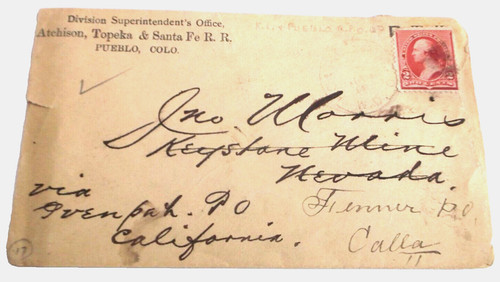 Division Superintendent's Office,
Atchison, Topeka & Santa Fe R. R.
PUEBLO, COLO.
Jno Morris
Keystone Mine
Nevada.
via
Ivenpah. PO
California.
Fenner P.O.
Calla
17
2 2